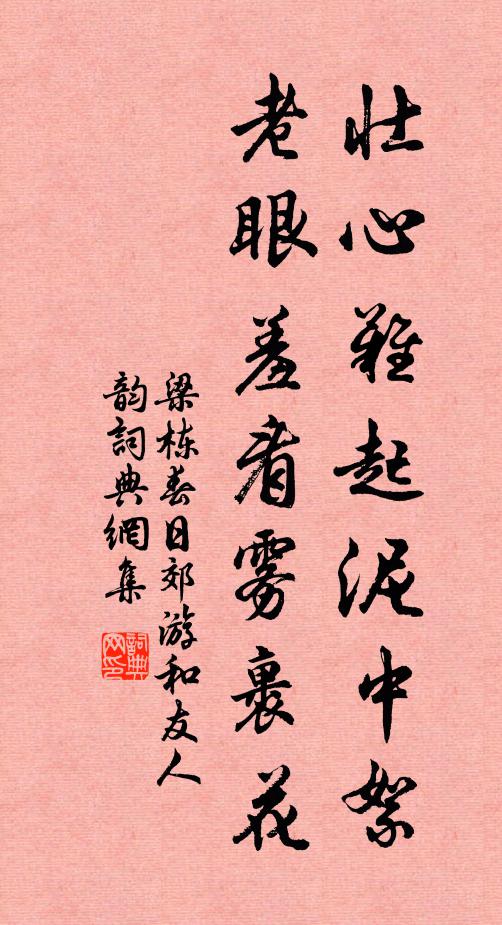 壮心難起泥中絮
老眼羞看雾裹花
梁栋春日郊游和友人
韵詞典網集
詞典网印